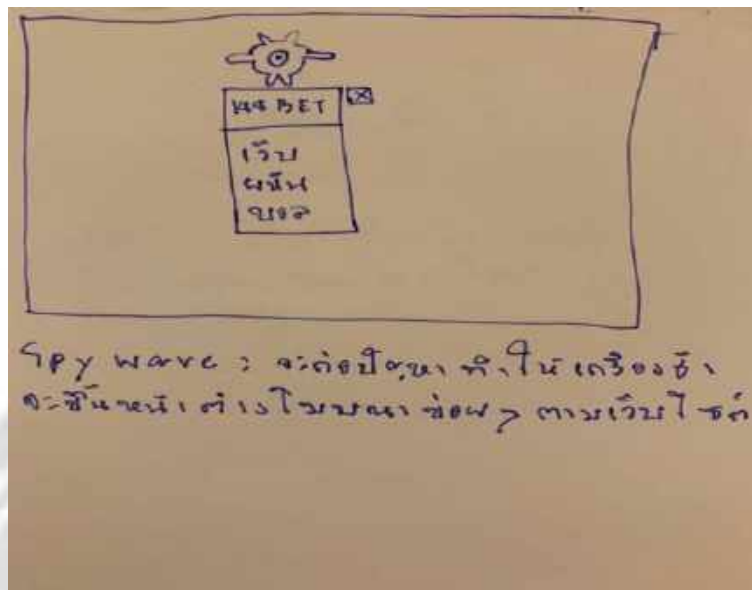 BET
เว็บ
พนัน
บอล
Spy ware : จะก่อปัญหา ทำให้เครื่องช้า
จะขึ้นหน้าต่างโฆษณา บ่อยๆ ตามเว็บไซต์